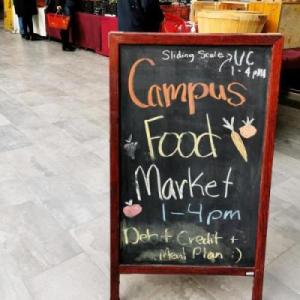 Sliding Scale U/C
1-4pm
Campus
Food
Market
1-4pm
Debit Credit +
Meal Plan :)